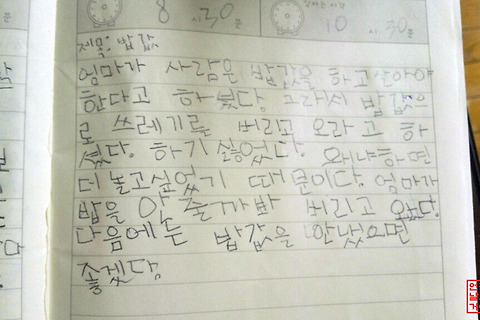 8 시 30 분
10 시 30 분
제목: 밥값
엄마가 사람은 밥값을 하고 산아야
한다고 하셨다. 그래서 밥값으
로 쓰레기를 버리고 오라고 하
셨다. 하기 싫었다. 왜냐하면
더 놀고싶었기 때문이다. 엄마가
밥을 안 줄까봐 버리고 왔다.
다음에는 밥값을 안냈으면
좋겠다.